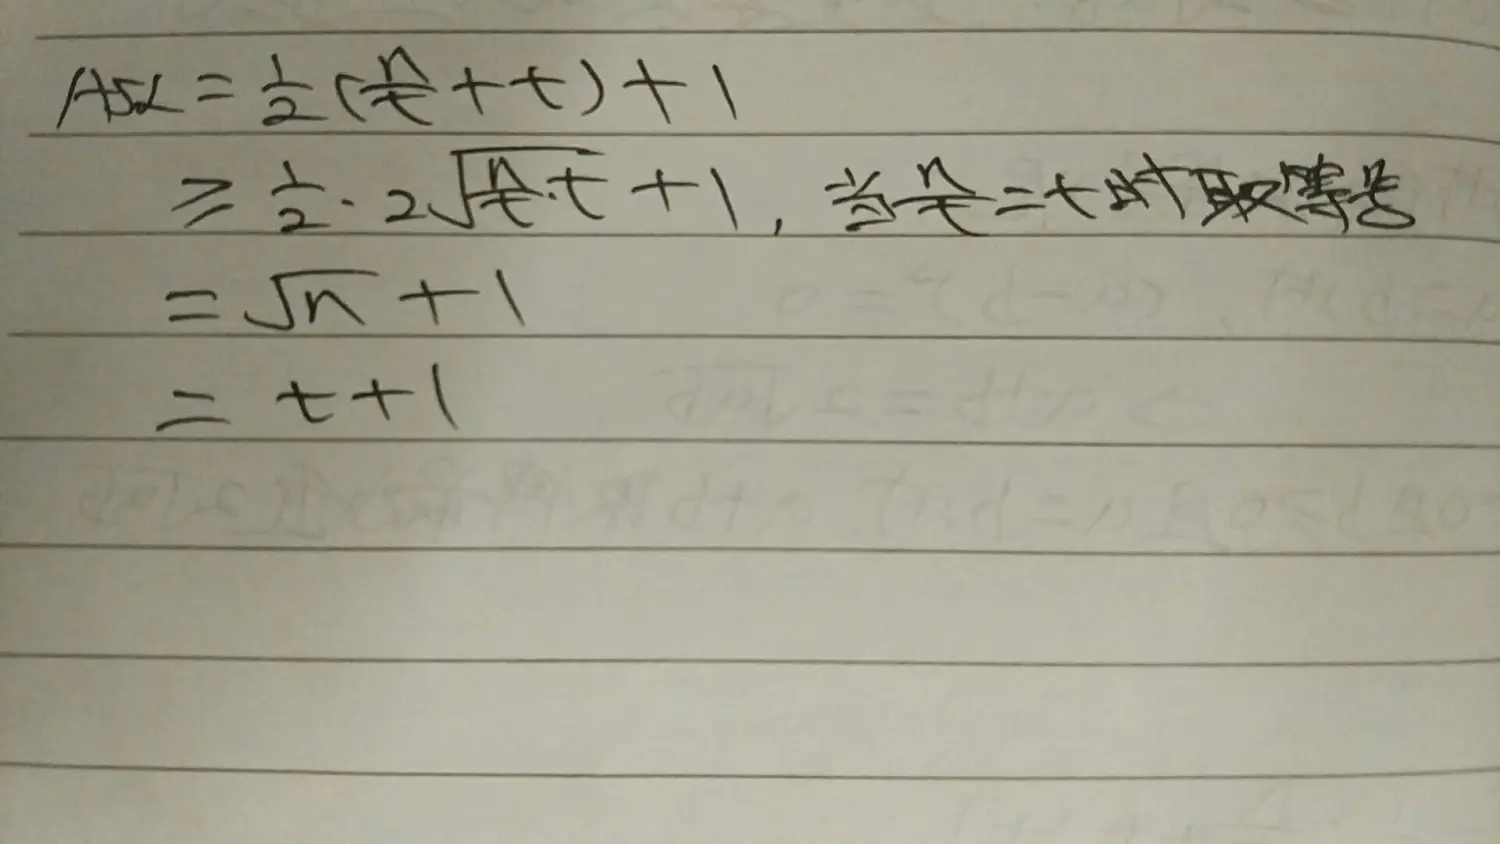 ASL = 1/2 (n/t + t) + 1
≥ 1/2 · 2√(n/t · t) + 1, 当 n/t = t 时取等号
= √n + 1
= t + 1